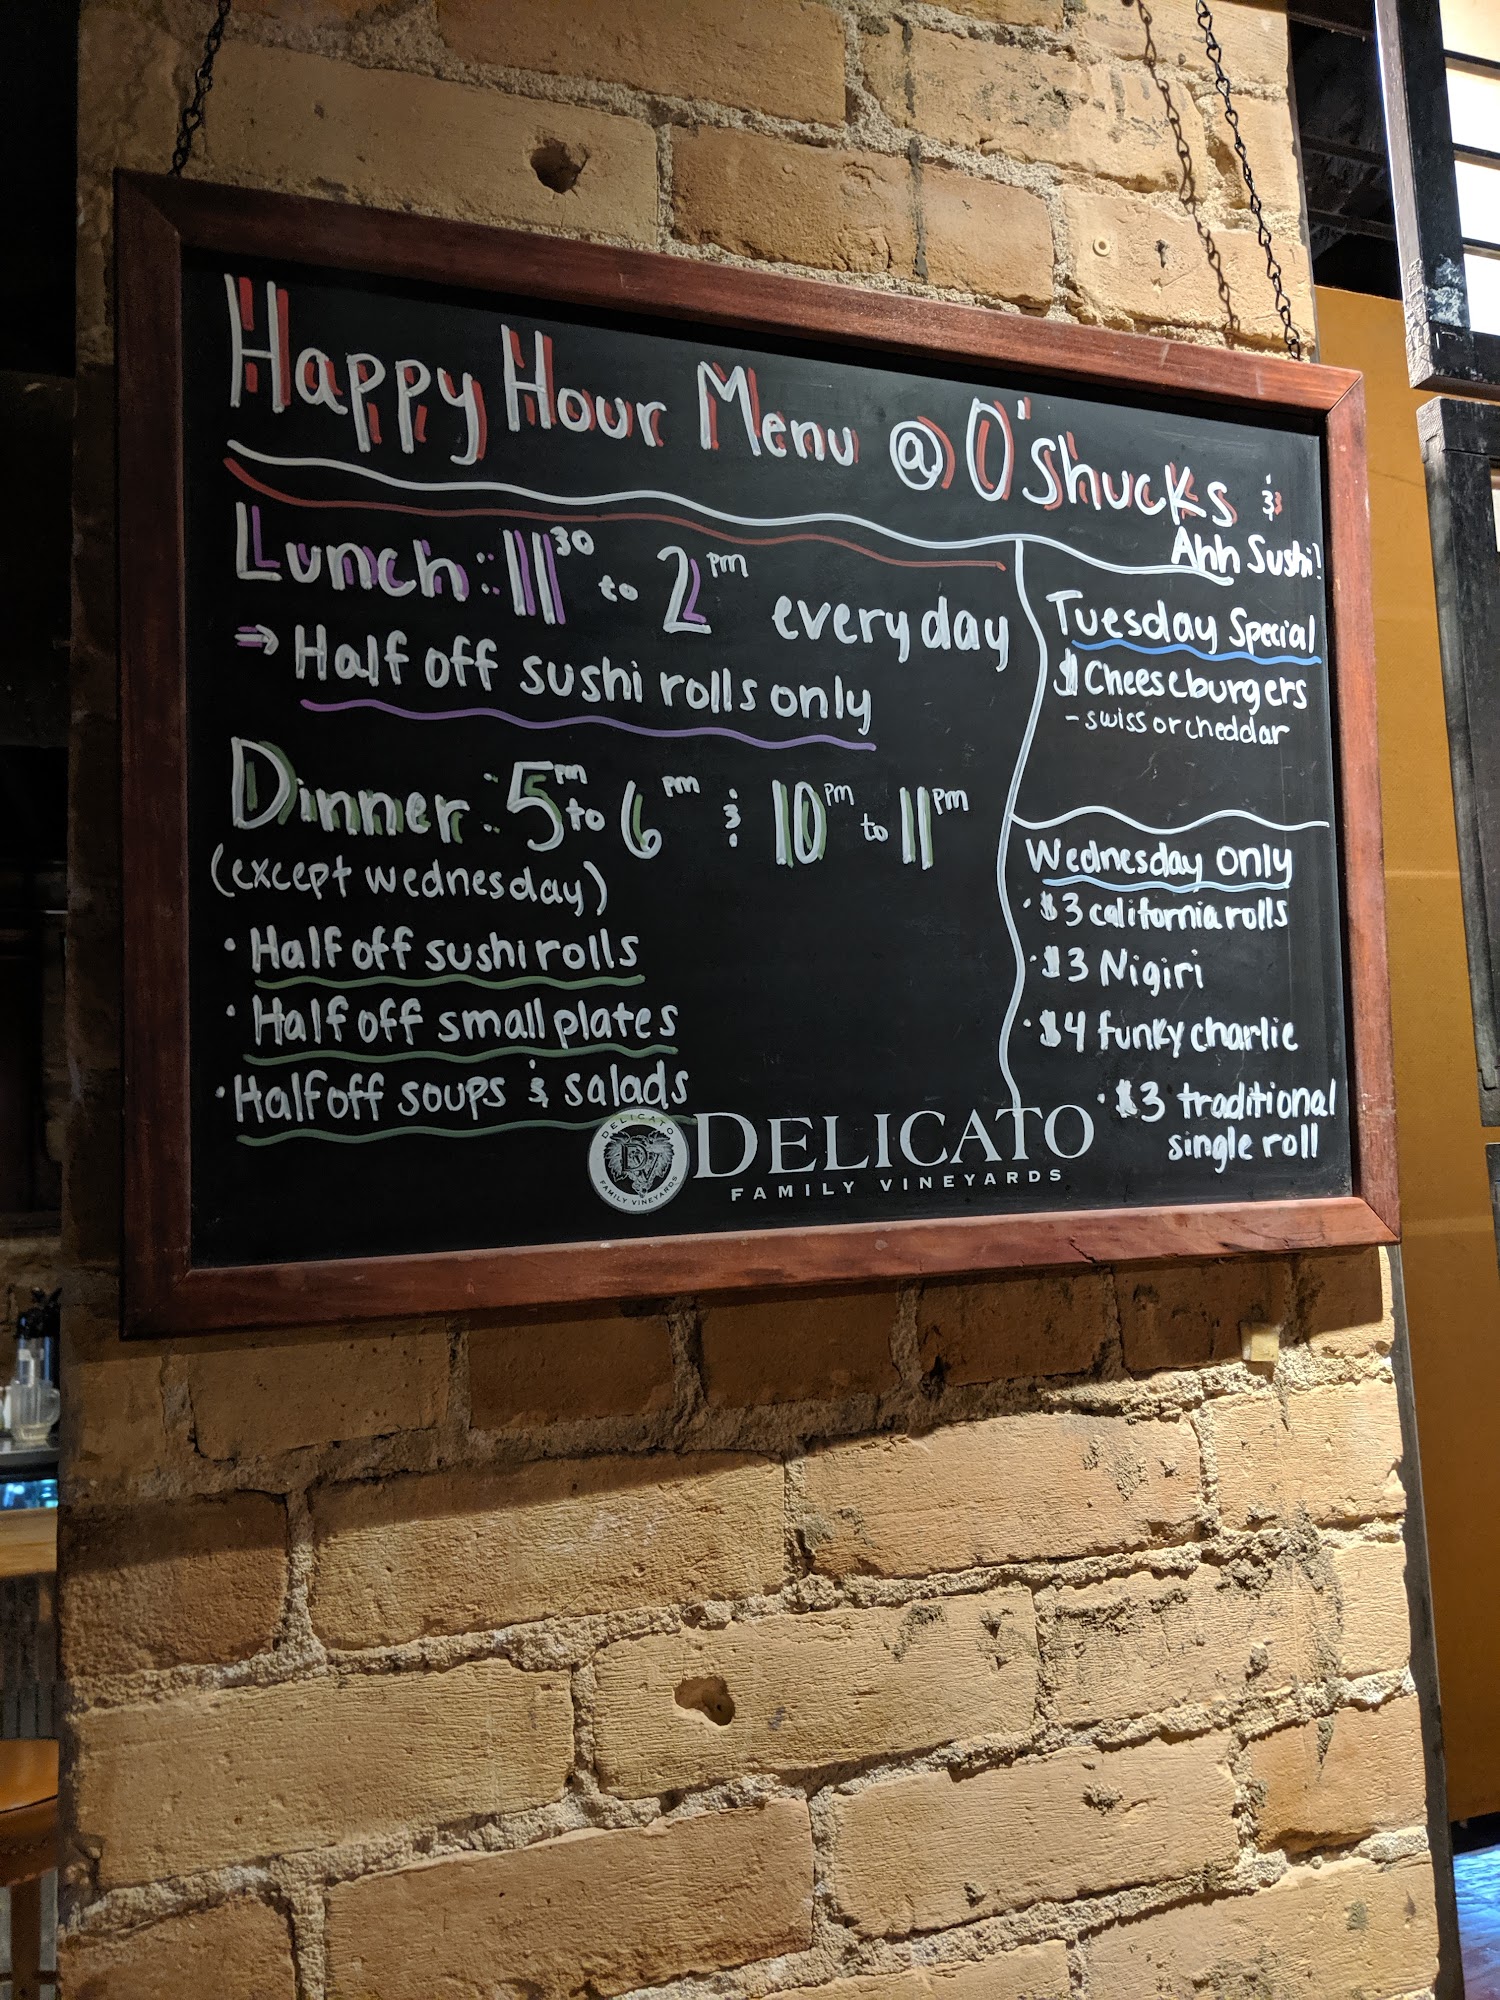 Happy Hour Menu @ O'Shucks &
Ahh Sushi!
Lunch: 11 30 to 2 pm everyday
⇒ Half off sushi rolls only
Dinner: 5 pm to 6 pm & 10 pm to 11 pm
(except wednesday)
• Half off sushi rolls
• Half off small plates
• Half off soups & salads
Tuesday Special
Cheeseburgers
- swiss or cheddar
Wednesday only
• $3 california rolls
• $3 Nigiri
• $4 funky charlie
• $3 traditional
single roll
DELICATO
FAMILY VINEYARDS
DELICATO
DFV
FAMILY VINEYARDS